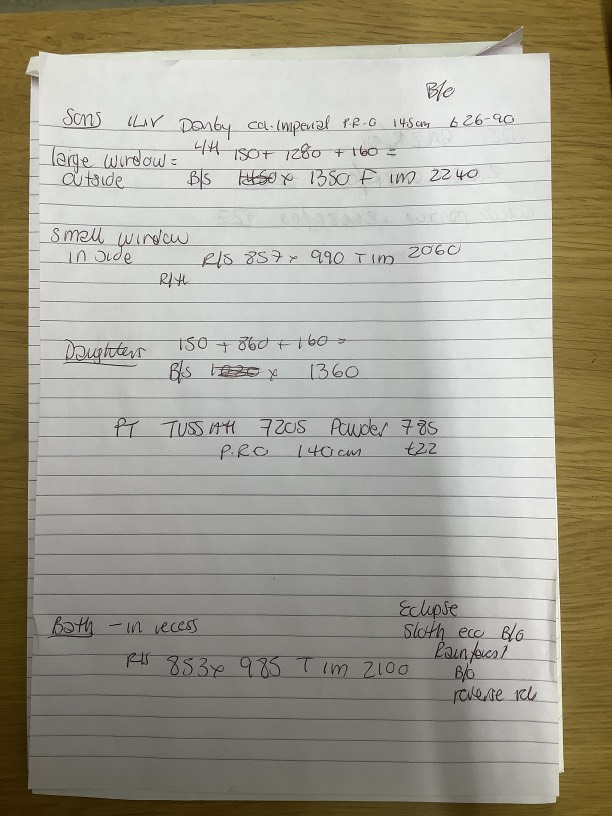 B/o
Sons ILIV Danby col. Imperial P.R.O 145cm £26-90
large window = L/H 150 + 1280 + 160 =
outside B/S 1450 x 1350 F im 2240
small window
inside R/S 857 x 990 T im 2060
R/H
Daughters 150 + 860 + 160 =
B/S x 1360
PT TUSSAH 7205 Powder 785
P.R.O 140cm £22
Eclipse
Bath - in recess Sloth eco B/o
Rainforest
R/S 853 x 985 T im 2100 B/o
reverse